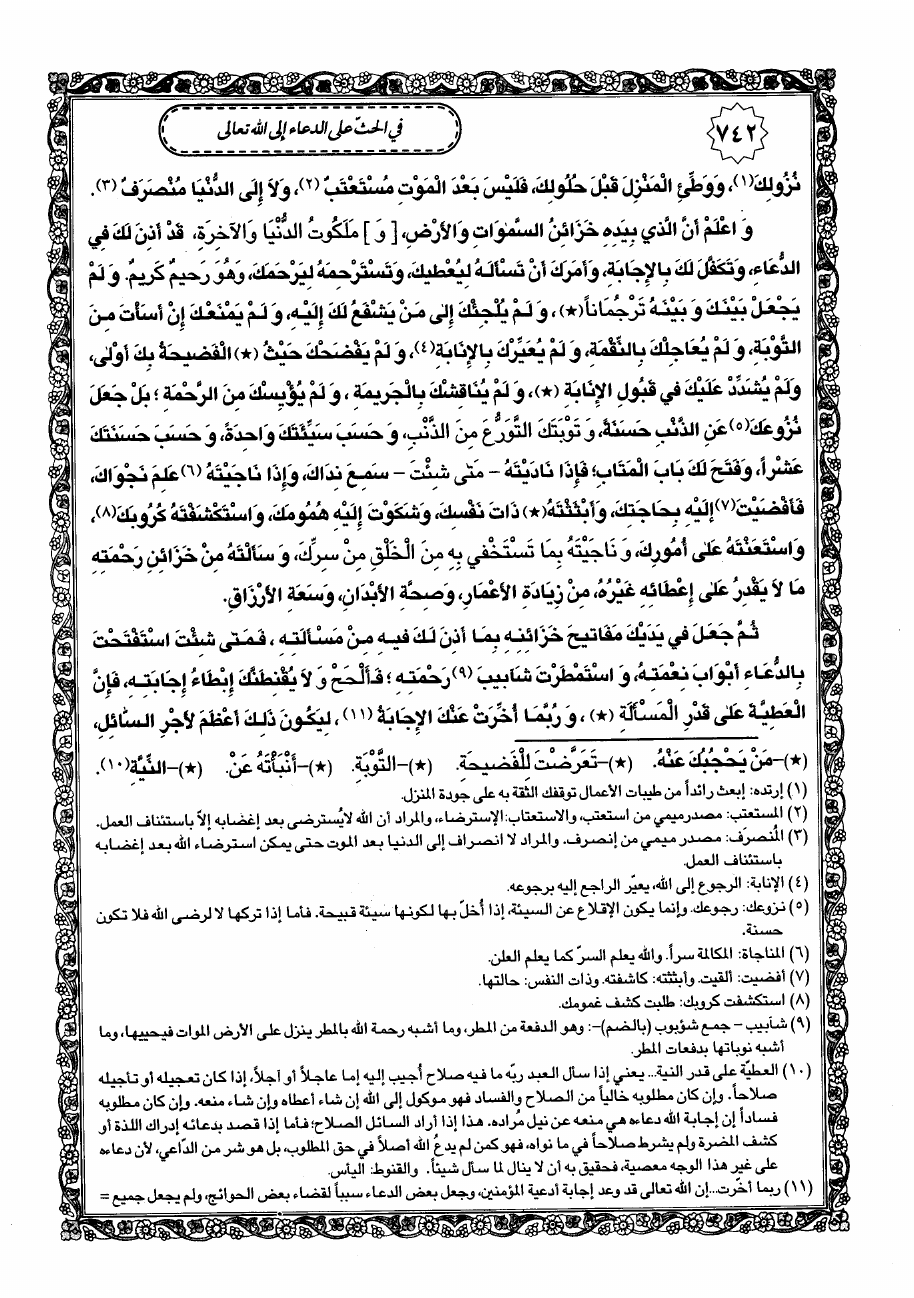 ٧٤٢
في الحثّ على الدعاء إلى الله تعالى
نُزُولِكَ(١)، وَوَطِّئِ الْمَنْزِلَ قَبْلَ حُلُولِكَ، فَلَيْسَ بَعْدَ الْمَوْتِ مُسْتَعْتَبٌ(٢)، وَلاَ إِلَى الدُّنْيَا مُنْصَرَفٌ(٣).
وَ اعْلَمْ أَنَّ الَّذِي بِيَدِهِ خَزَائِنُ السَّمٰوَاتِ وَالأَرْضِ، [ وَ ] مَلَكُوتُ الدُّنْيَا وَالآخِرَةِ، قَدْ أَذِنَ لَكَ فِي
الدُّعَاءِ، وَتَكَفَّلَ لَكَ بِالإِجَابَةِ، وَأَمَرَكَ أَنْ تَسْأَلَهُ لِيُعْطِيَكَ، وَتَسْتَرْحِمَهُ لِيَرْحَمَكَ، وَهُوَ رَحِيمٌ كَرِيمٌ. وَ لَمْ
يَجْعَلْ بَيْنَكَ وَ بَيْنَهُ تَرْجُمَاناً(★)، وَ لَمْ يُلْجِئْكَ إِلى مَنْ يَشْفَعُ لَكَ إِلَيْهِ، وَ لَمْ يَمْنَعْكَ إِنْ أَسَأْتَ مِنَ
التَّوْبَةِ، وَ لَمْ يُعَاجِلْكَ بِالنِّقْمَةِ، وَ لَمْ يُعَيِّرْكَ بِالإِنَابَةِ(٤)، وَ لَمْ يَفْضَحْكَ حَيْثُ (★) الْفَضِيحَةُ بِكَ أَوْلى،
وَلَمْ يُشَدِّدْ عَلَيْكَ فِي قَبُولِ الإِنَابَةِ (★)، وَ لَمْ يُنَاقِشْكَ بِالْجَرِيمَةِ ، وَ لَمْ يُؤْيِسْكَ مِنَ الرَّحْمَةِ ؛ بَلْ جَعَلَ
نُزُوعَكَ(٥) عَنِ الذَّنْبِ حَسَنَةً، وَ تَوْبَتَكَ التَّوَرُّعَ مِنَ الذَّنْبِ، وَ حَسَبَ سَيِّئَتَكَ وَاحِدَةً، وَ حَسَبَ حَسَنَتَكَ
عَشْراً، وَفَتَحَ لَكَ بَابَ الْمَتَابِ؛ فَإِذَا نَادَيْتَهُ - مَتى شِئْتَ - سَمِعَ نِدَاكَ، وَإِذَا نَاجَيْتَهُ (٦) عَلِمَ نَجْوَاكَ،
فَأَفْضَيْتَ(٧) إِلَيْهِ بِحَاجَتِكَ، وَأَبْثَثْتَهُ(★) ذَاتَ نَفْسِكَ، وَشَكَوْتَ إِلَيْهِ هُمُومَكَ، وَاسْتَكْشَفْتَهُ كُرُوبَكَ(٨)،
وَاسْتَعَنْتَهُ عَلى أُمُورِكَ، وَ نَاجَيْتَهُ بِمَا تَسْتَخْفي بِهِ مِنَ الْخَلْقِ مِنْ سِرِّكَ، وَ سَأَلْتَهُ مِنْ خَزَائِنِ رَحْمَتِهِ
مَا لاَ يَقْدِرُ عَلى إِعْطَائِهِ غَيْرُهُ، مِنْ زِيَادَةِ الأَعْمَارِ، وَصِحَّةِ الأَبْدَانِ، وَسَعَةِ الأَرْزَاقِ.
ثُمَّ جَعَلَ فِي يَدَيْكَ مَفَاتِيحَ خَزَائِنِهِ بِمَا أَذِنَ لَكَ فِيهِ مِنْ مَسْأَلَتِهِ ، فَمَتى شِئْتَ اسْتَفْتَحْتَ
بِالدُّعَاءِ أَبْوَابَ نِعْمَتِهِ، وَ اسْتَمْطَرْتَ شَابِيبَ (٩) رَحْمَتِهِ ؛ فَأَلْحِحْ وَ لاَ يُقْنِطَنَّكَ إِبْطَاءُ إِجَابَتِهِ، فَإِنَّ
الْعَطِيَّةَ عَلى قَدْرِ الْمَسْأَلَةِ (★)، وَ رُبَّمَا أُخِّرَتْ عَنْكَ الإِجَابَةُ (١١)، لِيَكُونَ ذَلِكَ أَعْظَمَ لأَجْرِ السَّائِلِ،
(★)-مَنْ يَحْجُبُكَ عَنْهُ. (★)-تَعَرَّضْتَ لِلْفَضِيحَةِ. (★)-التَّوْبَةِ. (★)-أَنْبَأْتَهُ عَنْ. (★)-النِّيَّةِ(١٠).
(١) إرتده: إبعث رائداً من طيبات الأعمال توقفك الثقة به على جودة المنزل.
(٢) المستعتب: مصدرميمي من استعتب، والاستعتاب: الإسترضاء، والمراد أن الله لايُسترضى بعد إغضابه إلاّ باستئناف العمل.
(٣) المُنصرَف: مصدر ميمي من إنصرف. والمراد لا انصراف إلى الدنيا بعد الموت حتى يمكن استرضاء الله بعد إغضابه
باستئناف العمل.
(٤) الإنابة: الرجوع إلى الله، يعيّر الراجع إليه برجوعه.
(٥) نزوعك: رجوعك. وإنما يكون الإقلاع عن السيئة، إذا أُخلّ بها لكونها سيئة قبيحة. فأما إذا تركها لا لرضى الله فلا تكون
حسنة.
(٦) المناجاة: المكالمة سراً. والله يعلم السرّ كما يعلم العلن.
(٧) أفضيت: ألقيت. وأبثثته: كاشفته. وذات النفس: حالتها.
(٨) استكشفت كروبك: طلبت كشف غمومك.
(٩) شآبيب - جمع شؤبوب (بالضم)-: وهو الدفعة من المطر، وما أشبه رحمة الله بالمطر ينزل على الأرض الموات فيحييها، وما
أشبه نوباتها بدفعات المطر.
(١٠) العطيّة على قدر النية... يعني إذا سأل العبد ربّه ما فيه صلاح أُجيب إليه إما عاجلاً أو آجلاً، إذا كان تعجيله أو تأجيله
صلاحاً. وإن كان مطلوبه خالياً من الصلاح والفساد فهو موكول إلى الله إن شاء أعطاه وإن شاء منعه. وإن كان مطلوبه
فساداً إن إجابة الله دعاءه هي منعه عن نيل مُراده. هذا إذا أراد السائل الصلاح؛ فأما إذا قصد بدعائه إدراك اللذة أو
كشف المضرة ولم يشرط صلاحاً في ما نواه، فهو كمن لم يدعُ الله أصلاً في حق المطلوب، بل هو شر من الدّاعي، لأن دعاءه
على غير هذا الوجه معصية، فحقيق به أن لا ينال لما سأل شيئاً. والقنوط: اليأس.
(١١) ربما أخّرت...إن الله تعالى قد وعد إجابة أدعية المؤمنين، وجعل بعض الدعاء سبباً لقضاء بعض الحوائج، ولم يجعل جميع =